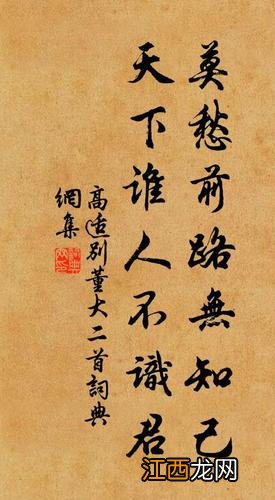 莫愁前路無知己
天下誰人不識君
高适別董大二首詞典
網集
江西龙网